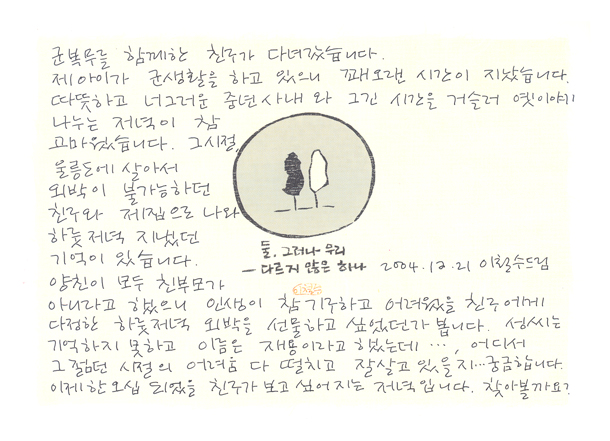 군복무를 함께한 친구가 다녀갔습니다.
제 아이가 군생활을 하고 있으니 꽤 오랜 시간이 지났습니다.
따뜻하고 너그러운 중년사내와 그긴 시간을 거슬러 옛이야기
나누는 저녁이 참
고마웠습니다. 그시절,
울릉도에 살아서
외박이 불가능하던
친구와 제집으로 나와
하룻저녁 지냈던
기억이 있습니다.
양친이 모두 친부모가
아니라고 했으니 인생이 참 기구하고 어려웠을 친구에게
다정한 하룻저녁 외박을 선물하고 싶었던가 봅니다. 성씨는
기억하지 못하고 이름은 재용이라고 했는데 …, 어디서
그 젊던 시절의 어려움 다 떨치고 잘살고 있을지…궁금합니다.
이제 한 오십 되었을 친구가 보고 싶어지는 저녁입니다. 찾아볼까요?
둘. 그러나 우리
— 다르지 않은 하나
2004.12.21 이철수드림